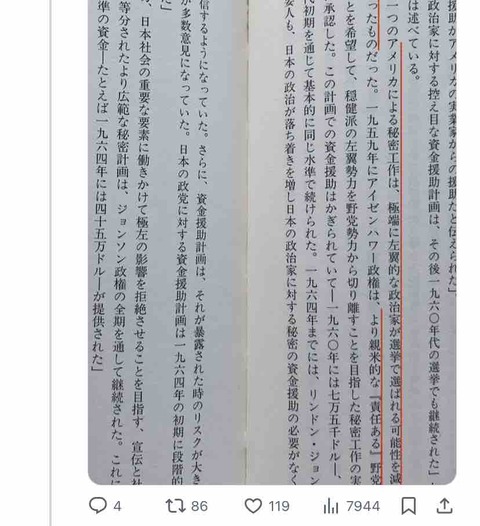 援助がアメリカの実業家からの援助だと伝えられた」
政治家に対する控え目な資金援助計画は、その後一九六〇年代の選挙でも継続された」
は述べている。
一つのアメリカによる秘密工作は、極端に左翼的な政治家が選挙で選ばれる可能性を減
ったものだった。一九五九年にアイゼンハワー政権は、より親米的な「責任ある」野党
とを希望して、穏健派の左翼勢力を野党勢力から切り離すことを目指した秘密工作の実
承認した。この計画での資金援助はかぎられていて―一九六〇年には七万五千ドル―、
代初期を通じて基本的に同じ水準で続けられた。一九六四年までには、リンドン・ジョン
要人も、日本の政治が落ち着きを増し日本の政治家に対する秘密の資金援助の必要がなく
信するようになっていた。さらに、資金援助計画は、それが暴露された時のリスクが大き
が多数意見になっていた。日本の政党に対する資金援助計画は一九六四年の初期に段階的
た」
、日本社会の重要な要素に働きかけて極左の影響を拒絶させることを目指す、宣伝と社
等分されたより広範な秘密計画は、ジョンソン政権の全期を通して継続された。これに
準の資金―たとえば一九六四年には四十五万ドル―が提供された」
4 86 119 7944